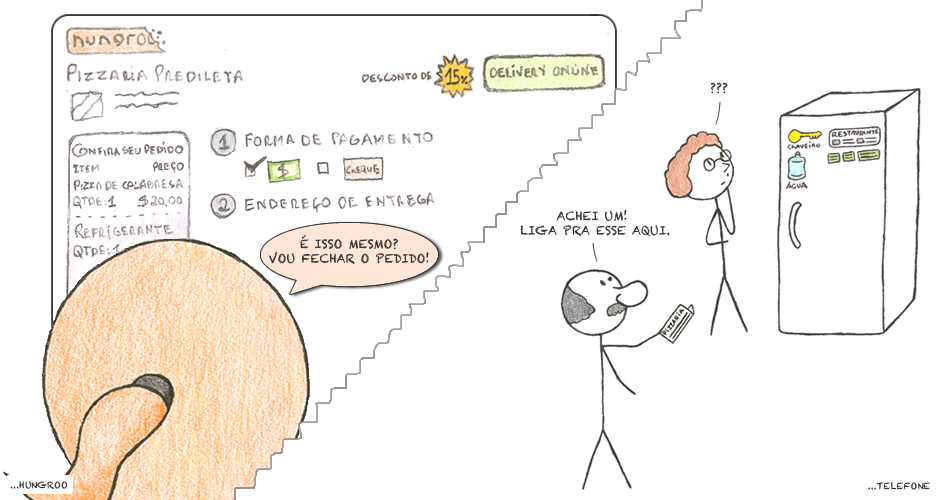 hungroo
PIZZARIA PREDILETA
DESCONTO DE 15%
DELIVERY ONLINE
CONFIRA SEU PEDIDO
ITEM PREÇO
PIZZA DE CALABRESA
QTDE: 1 $20,00
REFRIGERANTE
QTDE: 1
1 FORMA DE PAGAMENTO
$ CHEQUE
2 ENDEREÇO DE ENTREGA
É ISSO MESMO?
VOU FECHAR O PEDIDO!
...HUNGROO
???
ACHEI UM!
LIGA PRA ESSE AQUI.
PIZZARIA
CHAVEIRO
RESTAURANTE
ÁGUA
...TELEFONE